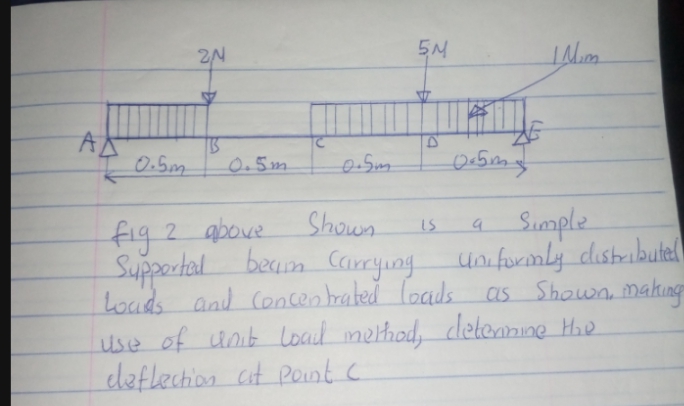 2N 5N 1N/m
A B C D E
0.5m 0.5m 0.5m 0.5m
fig 2 above Shown is a Simple
Supported beam Carrying Uniformly distributed
loads and Concentrated loads as Shown. making
use of unit load method, determine the
deflection at point C